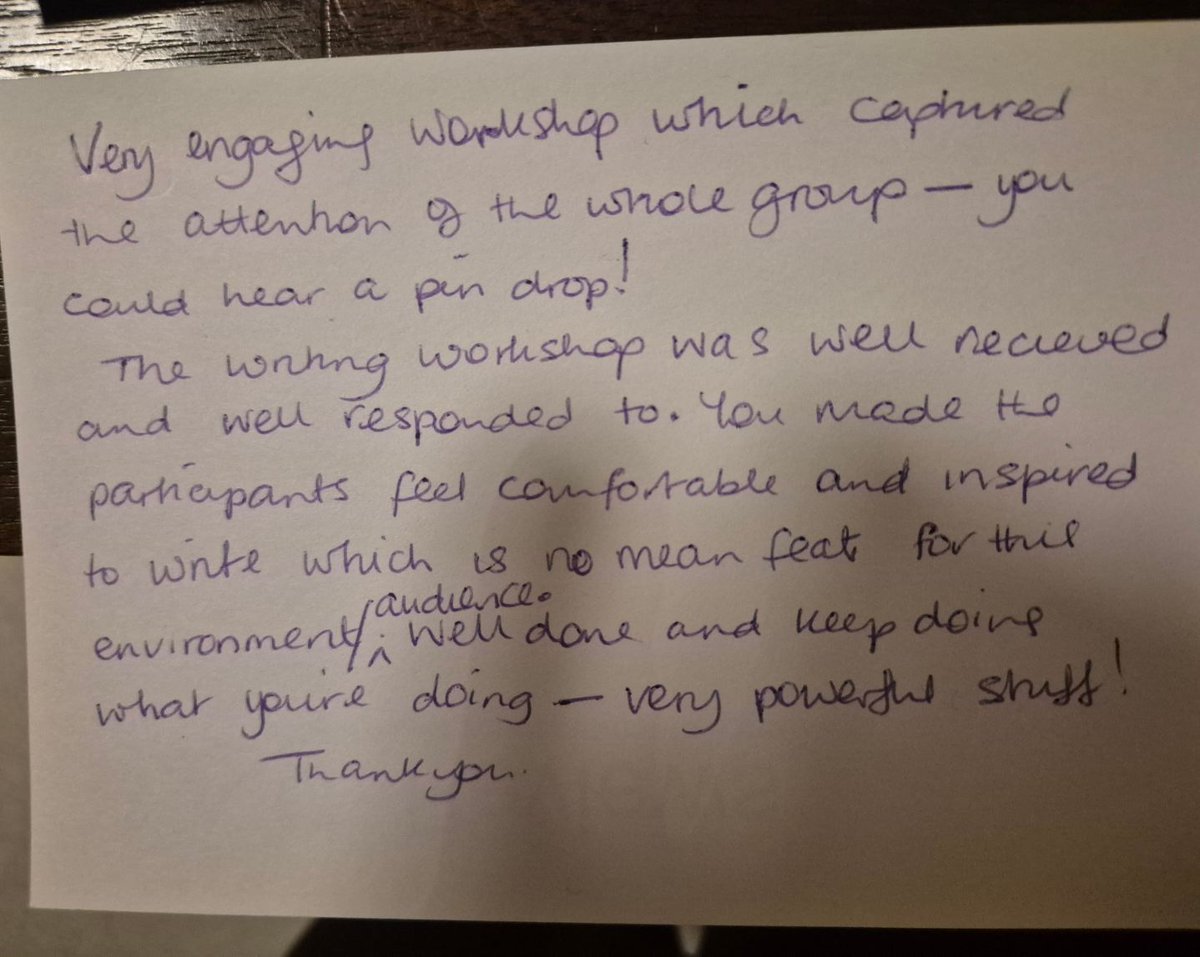 Very engaging workshop which captured
the attention of the whole group – you
could hear a pin drop!
The writing workshop was well recieved
and well responded to. You made the
participants feel comfortable and inspired
to write which is no mean feat for this
environment/audience. Well done and keep doing
what you're doing – very powerful stuff!
Thankyou.